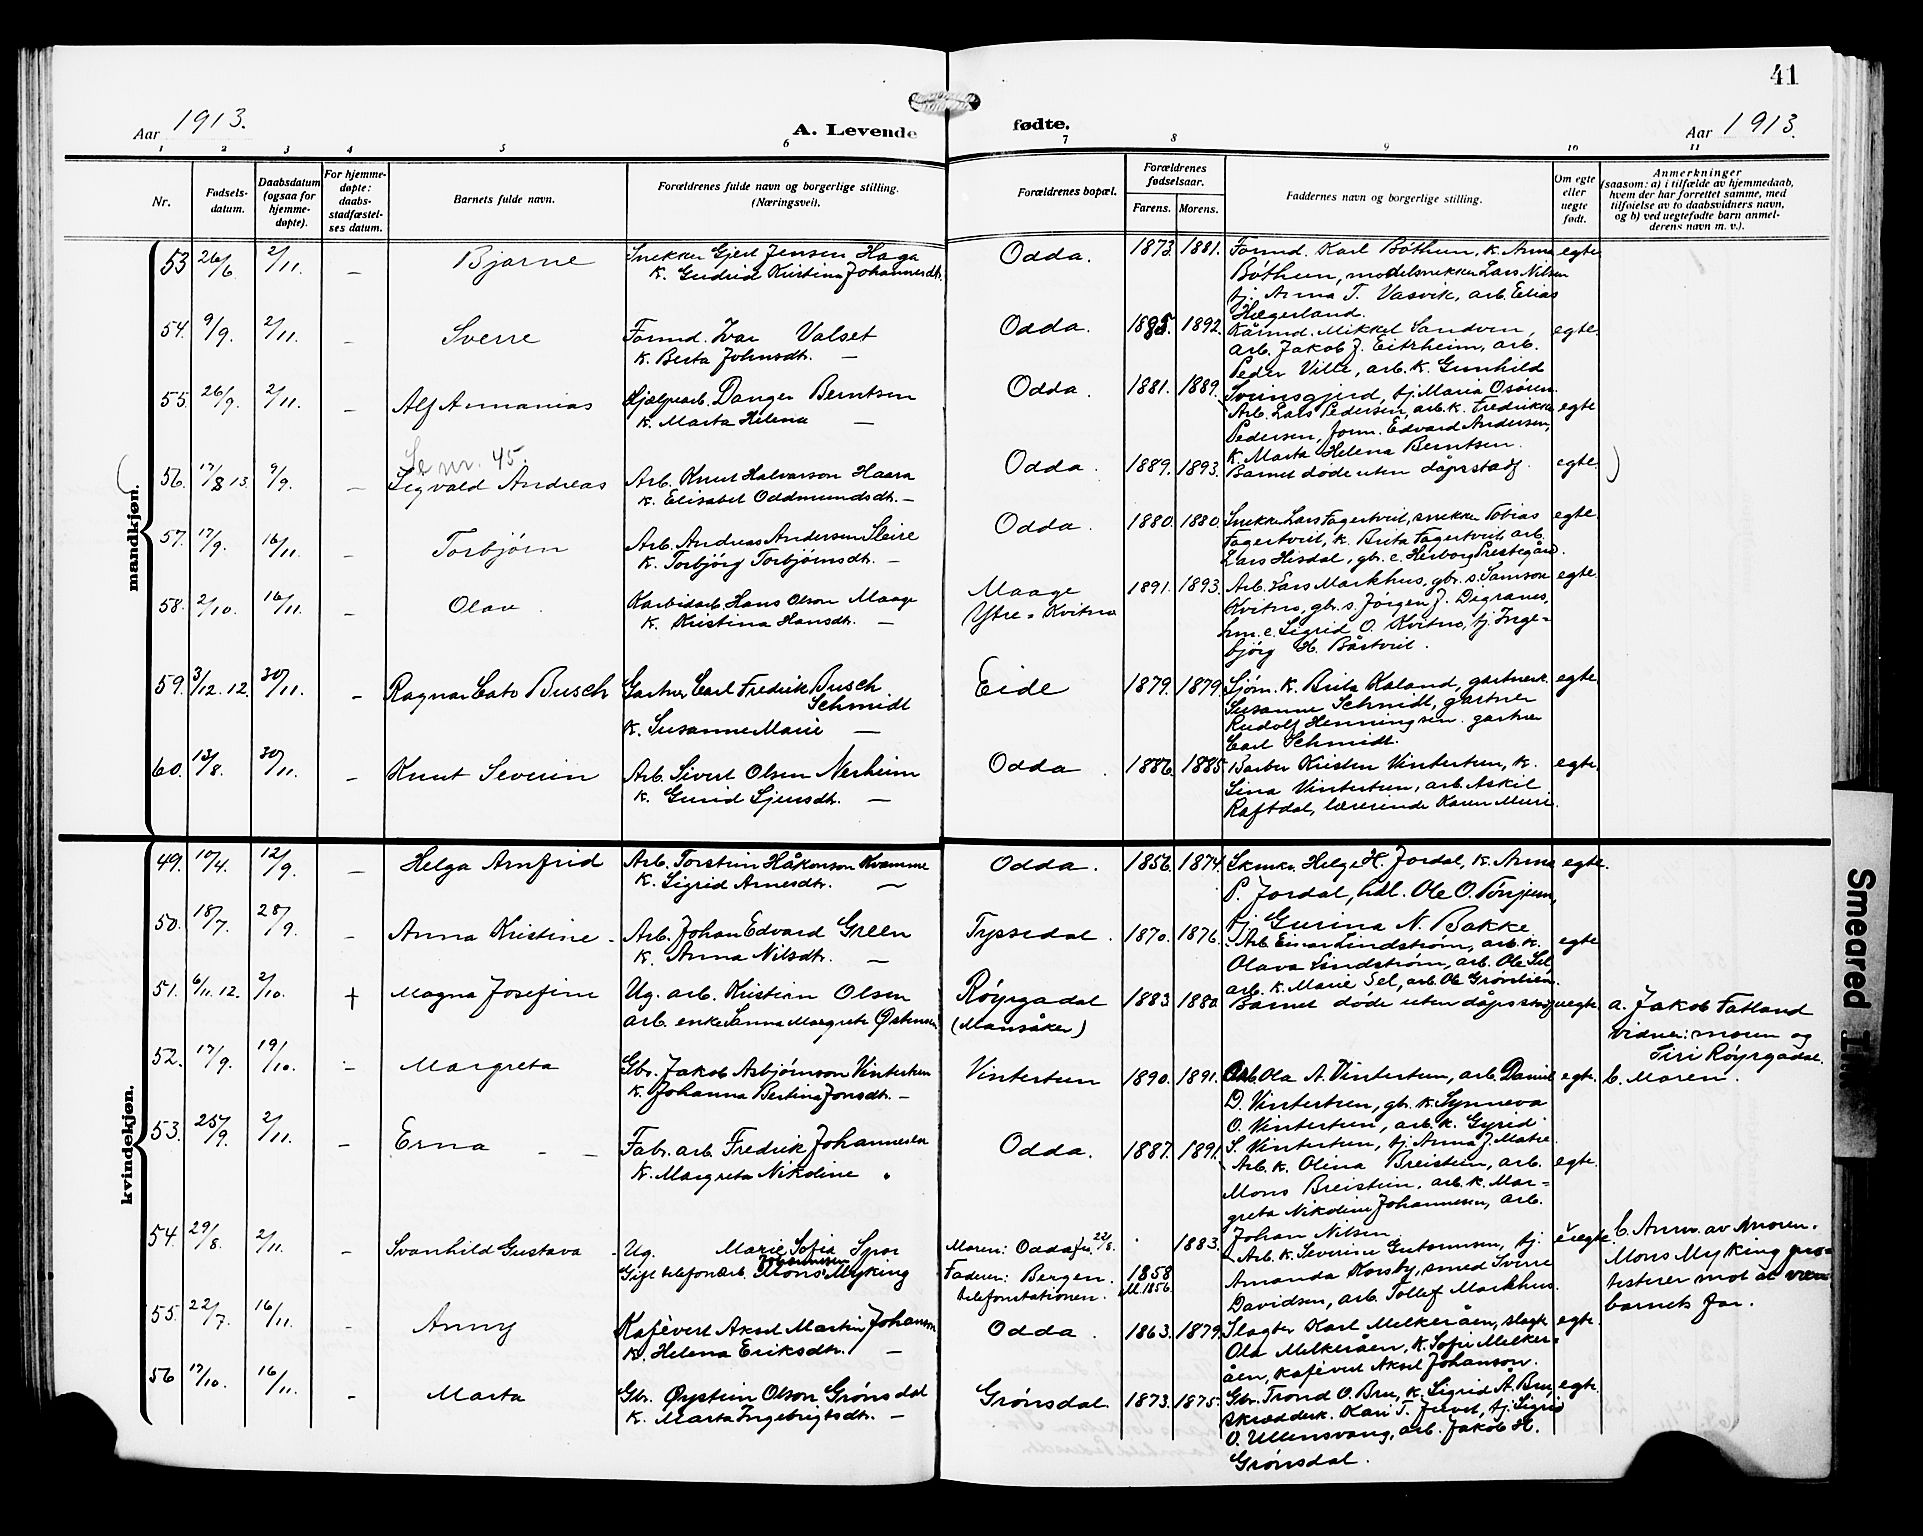 41
Aar 1913.
A. Levende
fødte.
Aar 1913.
1 2 3 4 5 6 7 8 9 10 11
Nr.
Fødsels-
datum.
Daabsdatum
(ogsaa for
hjemme-
døpte).
For hjemme-
døpte:
daabs-
stadfæstel-
ses datum.
Barnets fulde navn.
Forældrenes fulde navn og borgerlige stilling.
(Næringsvei).
Forældrenes bopæl.
Forældrenes
fødselsaar.
Farens. Morens.
Faddernes navn og borgerlige stilling.
Om egte
eller
uegte
født.
Anmerkninger
(saasom: a) i tilfælde av hjemmedaab,
hvem der har forrettet samme, med
tilføielse av to daabsvidners navn,
og b) ved uegtefødte barn anmel-
derens navn m. v.).
mandkjøn.
53 26/6. 2/11. – Bjarne
Snekker Gjert Jensen Haga
K. Gudrid Kristina Johannesdt.
Odda. 1873. 1881.
Formd. Karl Bøthun, K. Anna egte.
Bøthun, modelsnekker Lars Nilsen
tj. Anna T. Vasvik, arb. Elias
Hægerland.
54. 9/9. 2/11. – Sverre
Formd. Ivar Valset
K. Berta Johnsdt. –
Odda. 1885. 1892.
Mikkel Sandven, egte.
arb. Jakob J. Eitrheim, arb.
Peder Ville, arb. K. Gunhild
Svinsgjerd, tj. Maria Osøren.
55. 26/9. 2/11. – Alf Ammanias
Hjælpearb. Danger Berntsen
K. Marta Helena –
Odda. 1881. 1889.
Arb. Lars Pedersen, arb. K. Fredrikke egte
Pedersen, form. Edvard Andersen,
K. Marta Helena Berntsen.
Se nr. 45.
( 56. 17/8 13. 9/9. – Sigvald Andreas
Arb. Knut Halvarson Haara
K. Elisabet Oddmundsdt. –
Odda. 1889. 1893.
Barnet døde uten dåpsstadf. egte. )
57. 17/9. 16/11. – Torbjørn
Arb. Andreas Andersen Sleire
K. Torbjörg Torbjørnsdt. –
Odda. 1880. 1880.
Snekker Lars Fagertveit, snekker Tobias egte.
Fagertveit, K. Brita Fagertveit, arb.
Lars Hisdal, gbr. e. Herborg Prestegård.
58. 2/10. 16/11. – Olav.
Karbidarb. Hans Olson Maage
K. Kristina Hansdt. –
Maage
Ytre-Kvitno
1891. 1893.
Arb. Lars Markhus, gbr. s. Samson egte.
Kvitno, gbr. s. Jörgen J. Digranes,
hm. e. Sigrid O. Kvitno, tj. Inge-
björg H. Båstveit.
59. 3/12. 12. 30/11. – Ragnar Cato Busch
Gartner Carl Fredrik Busch
Schmidt
K. Susanne Marie –
Eide 1879. 1879.
Sjøm. K. Brita Kaland, gartnerk. egte.
Susanne Schmidt, gartner
Rudolf Henningsen. gartner
Carl Schmidt.
60. 13/8. 30/11. – Knut Severin
Arb. Sivert Olsen Nerheim
K. Gurid Sjursdt. –
Odda. 1886. 1885.
Barber Kristen Vintertun, K. egte.
Sina Vintertun, arb. Askil
Raftdal, lærerinde Karen Muri
kvindekjøn.
49. 10/4. 12/9. – Helga Arnfrid
Arb. Torstein Håkonson Kvamme
K. Sigrid Arnesdt. –
Odda. 1856. 1874.
Helge H. Jordal, K. Anna egte.
P. Jordal, hdl. Ole O. Tönjum,
tj. Gurina N. Bakke.
50. 18/7. 28/9. – Anna Kristine –
Arb. Johan Edvard Green
K. Anna Nilsdt. –
Tyssedal. 1870. 1876.
Arb. Einar Lindstrøm, arb. K. egte
Olava Lindstrøm, arb. Ole Sel
arb. K. Marie Sel, arb. Ole Grönlien.
51. 6/11. 12. 2/10. + Magna Josefine
Ug. arb. Kristian Olsen
arb. enke Sanna Margrete Østensen
Röyrgadal
(Mansåker)
1883 1880
Barnet døde uten dåpsstadf. uegte.
a. Jakob Fatland
vidner: moren og
Siri Röyrgadal.
b. Moren.
52. 17/9. 19/10. – Margreta
Gbr. Jakob Asbjörnson Vintertun
K. Johanna Bertina Jonsdt. –
Vintertun 1890. 1891.
Arb. Ola A. Vintertun, arb. Daniel egt.
D. Vintertun, gb. K. Synneva
O. Vintertun, arb. K. Gyrid
S. Vintertun, tj. Anna J. Matre.
53. 25/9. 2/11. – Erna – –
Fabr. arb. Fredrik Johannesen
K. Margreta Nikoline "
Odda. 1887. 1891.
Arb. K. Olina Breistein, arb. egte.
Mons Breistein, arb. K. Mar-
greta Nikoline Johannesen, arb.
Johan Nilsen.
54. 29/8. 2/11. – Svanhild Gustava –
Ug. Marie Sofia Spor
Johannesen
Gift telefonarb. Mons Myking
Moren: Odda fra 22/8.
Faderen: Bergen.
telefonstationen.
1858
M. 1856.
1883.
Arb. K. Severine Gutormsen, tj. uegte.
Amanda Korsby, smed Sverre
Davidsen, arb. Tollef Markhus.
b. Anm. av Moren.
Mons Myking pro-
testerer mot at være
barnets far.
55. 22/7. 16/11. – Anny
KaféverT Aksel Martin Johanson
K. Helena Eriksdt. –
Odda. 1863. 1879.
Slagter Karl Melkeråen, slagt. egte.
Ola Melkeråen, K. Sofie Melker-
åen, kafévert Aksel Johanson.
56 17/10. 16/11. – Marta
Gbr. Øystein Olson Grönsdal
K. Marta Ingebrigtsdt. –
Grönsdal 1873. 1875.
Gbr. Trond O. Bru, K. Sigrid A. Bru, egte.
skrædderk. Kari T. Juvet, tj. Sigrid
O. Ullensvang, arb. Jakob H.
Grönsdal.
Smeared